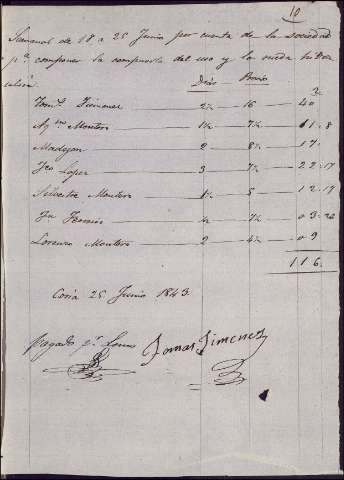 10
Semanal de 18 a 25 Junio por cuenta de la sociedad
pª componer la compuerta del uso y la rueda hidra
Dias Precio
Tomˢ Jimenez 2½ 16 40
Agⁿ Montero 1½ 7½ 11.8
Madejon 2 8½ 17
Fco Lopez 3 7½ 22.17
Silvestre Montero 1½ 12.17
½ 7½ 03.26
Lorenzo Montero 2 4½ 09
116
Coria 25 Junio 1843.
Pagado pʳ
Tomas Jimenez